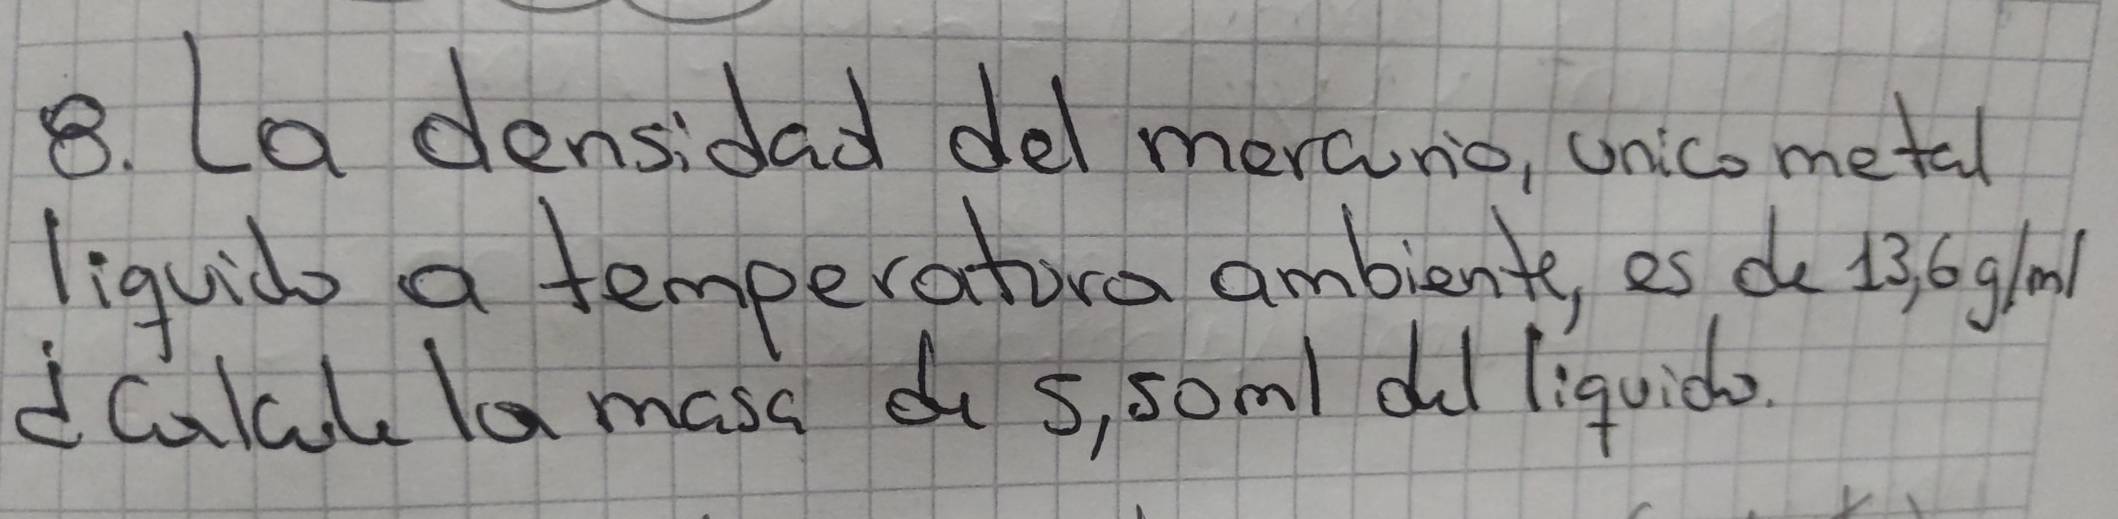 8. La densidad del mercurio, unico metal
liquido a temperatura ambiente, es de 13,6 g/ml
¿Calcule la masa de 5,50ml del liquido.